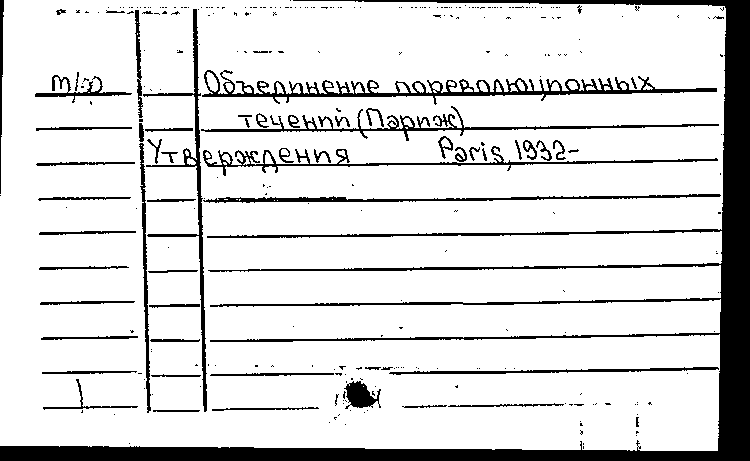 т/ф Объединение пореволюционных
течений (Париж)
Утверждения Paris, 1932-